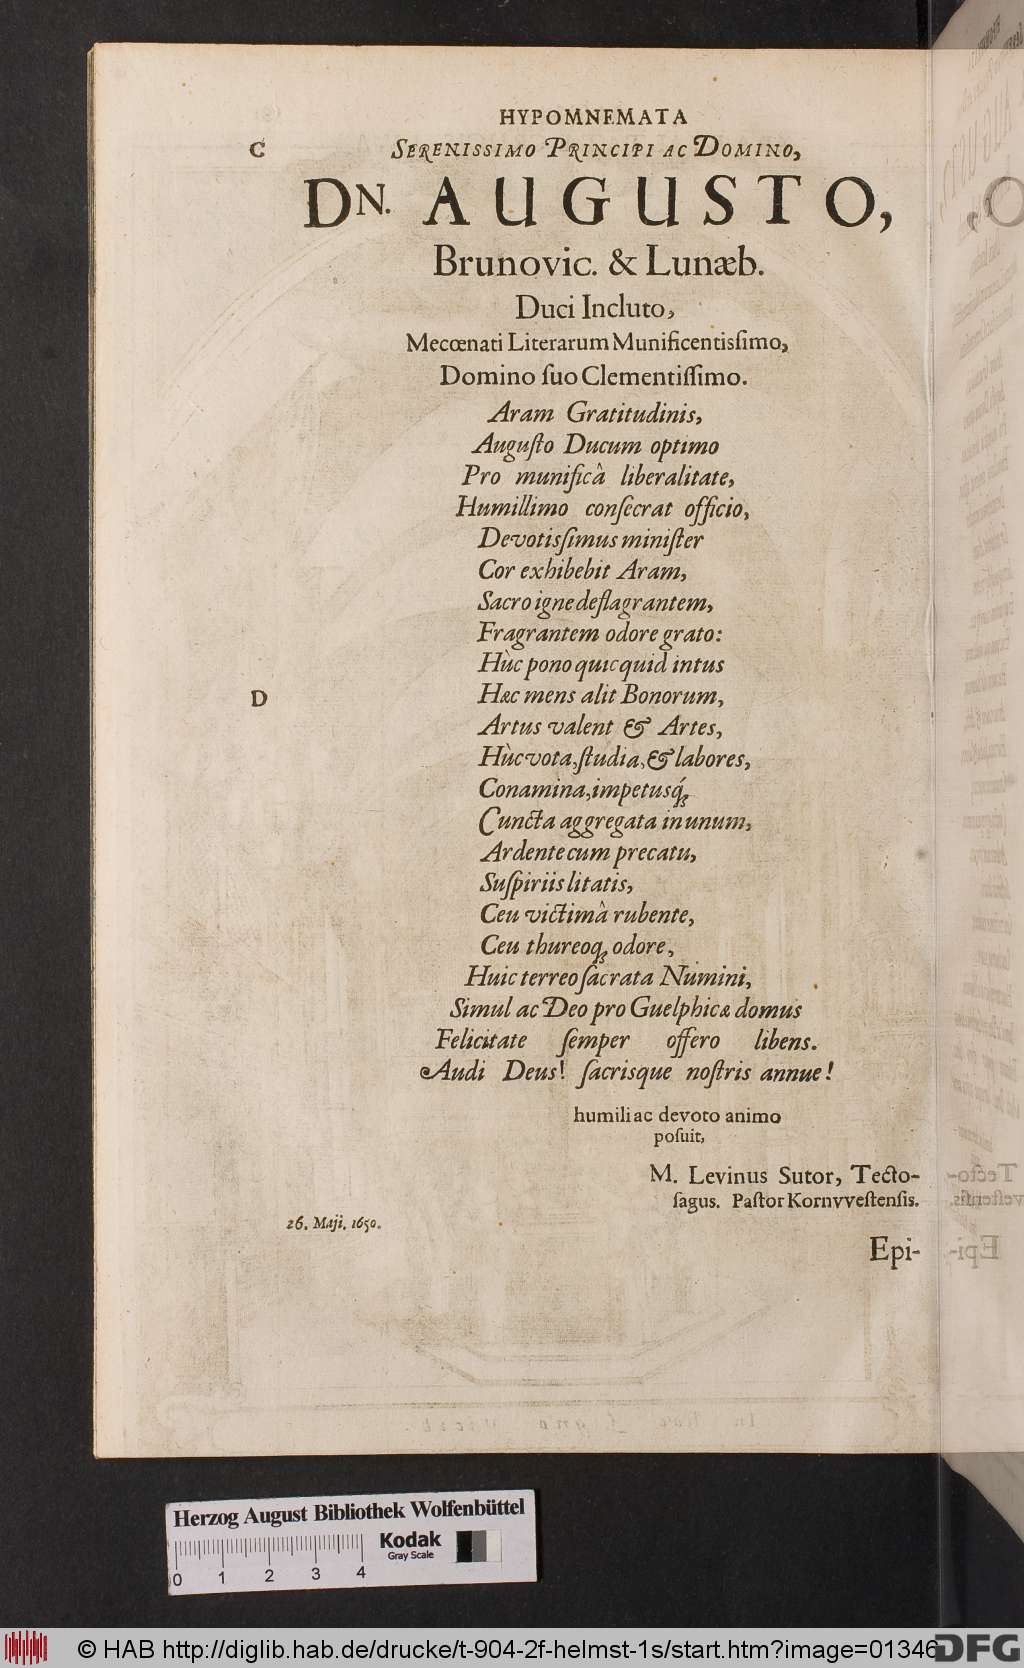 HYPOMNEMATA
C
SERENISSIMO PRINCIPI AC DOMINO,
DN. AUGUSTO,
Brunovic. & Lunæb.
Duci Incluto,
Mecœnati Literarum Munificentisſimo,
Domino ſuo Clementiſſimo.
Aram Gratitudinis,
Auguſto Ducum optimo
Pro munificâ liberalitate,
Humillimo conſecrat officio,
Devotisſimus miniſter
Cor exhibebit Aram,
Sacro igne deflagrantem,
Fragrantem odore grato:
Hùc pono quicquid intus
D
Hæc mens alit Bonorum,
Artus valent & Artes,
Hùc vota, ſtudia, & labores,
Conamina, impetusq́;
Cuncta aggregata in unum,
Ardente cum precatu,
Suſpiriis litatis,
Ceu victimâ rubente,
Ceu thureoq; odore,
Huic terreo ſacrata Numini,
Simul ac Deo pro Guelphicæ domus
Felicitate ſemper offero libens.
Audi Deus! ſacrisque noſtris annue!
humili ac devoto animo
poſuit,
M. Levinus Sutor, Tecto-
ſagus. Paſtor Kornvveſtenſis.
26. Maji. 1650.
Epi-
Herzog August Bibliothek Wolfenbüttel
Kodak
Gray Scale
0 1 2 3 4
© HAB http://diglib.hab.de/drucke/t-904-2f-helmst-1s/start.htm?image=01346
DFG